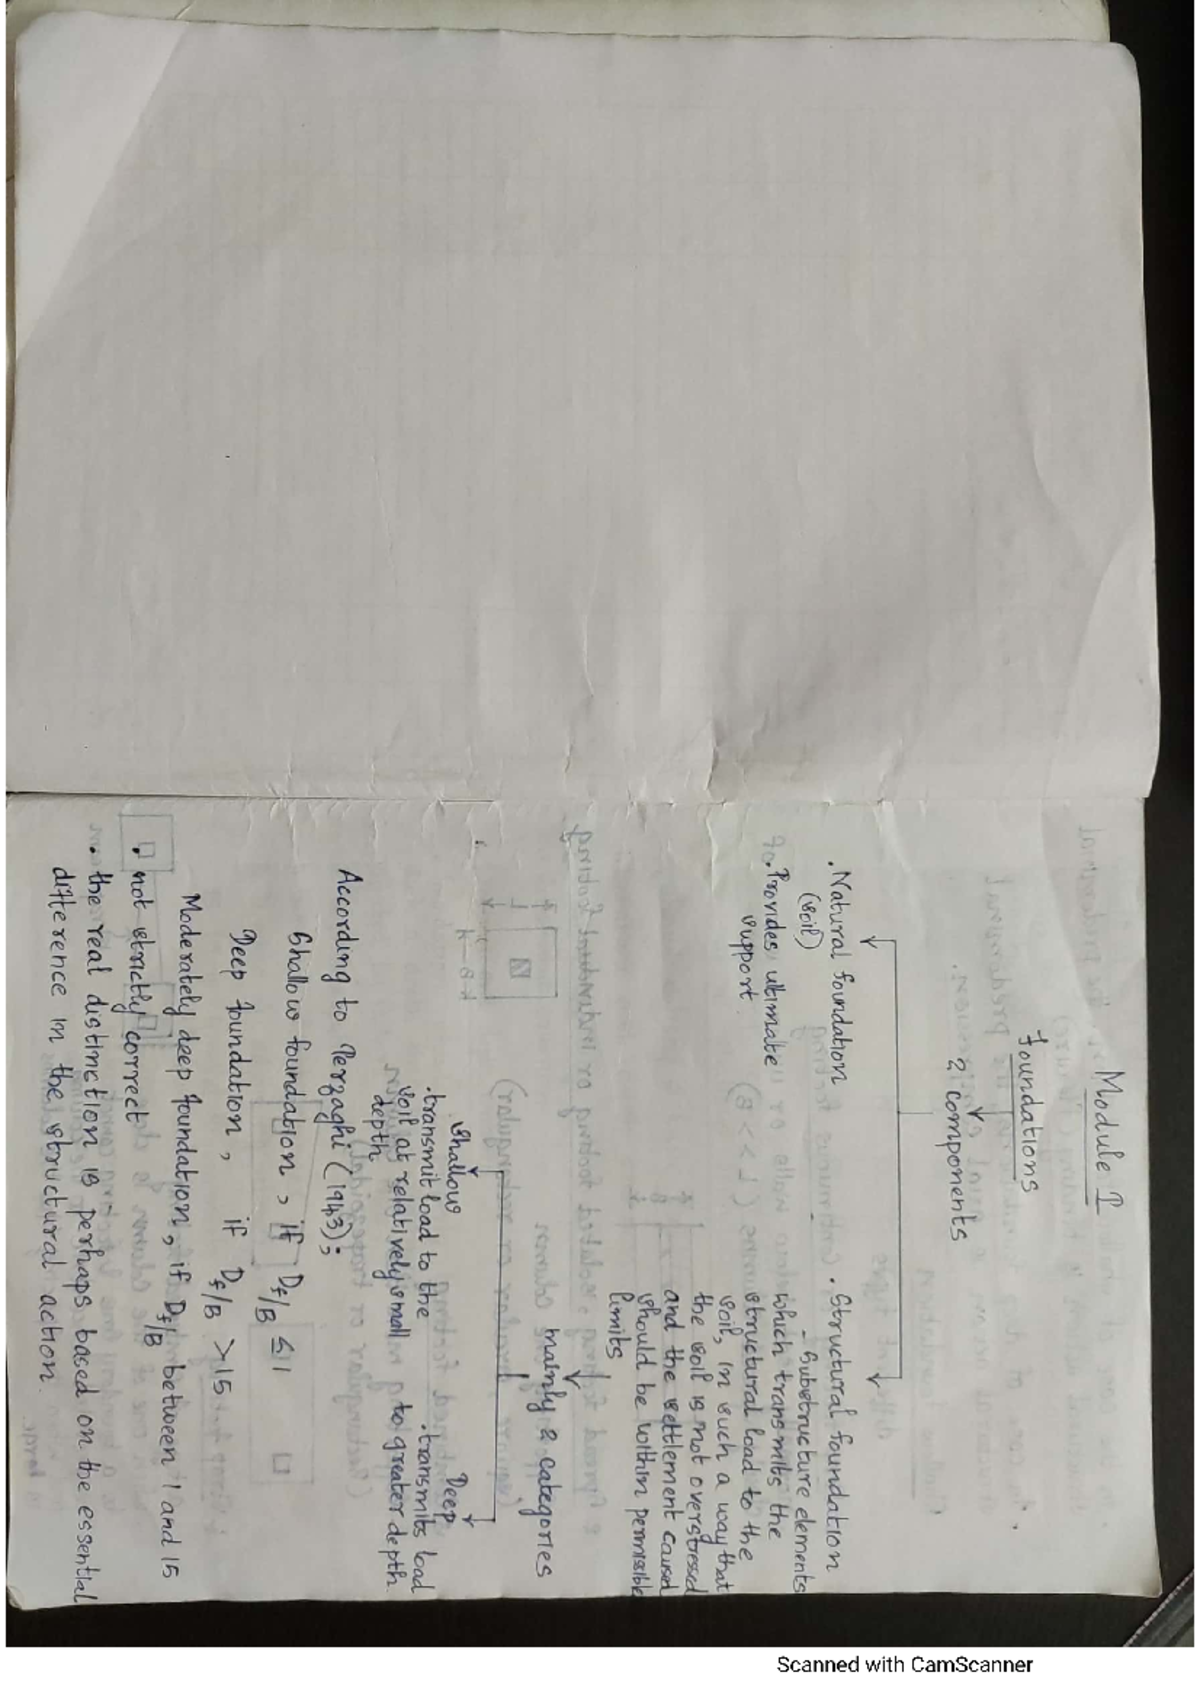 Module I
foundations
2 components
. Natural foundation
(soil)
. Provides ultimate
support
. Structural foundation
- Substructure elements
which transmits the
structural load to the
soil, in such a way that
the soil is not overstressed
and the settlement caused
should be within permissible
limits
mainly 2 categories
shallow
. transmit load to the
soil at relatively small
depth
Deep
. transmits load
to greater depth
According to Terzaghi (1943);
Shallow foundation, if Df/B ≤ 1
Deep foundation, if Df/B > 15
Moderately deep foundation, if Df/B between 1 and 15
. not strictly correct
. the real distinction is perhaps based on the essential
difference in the structural action.
Scanned with CamScanner